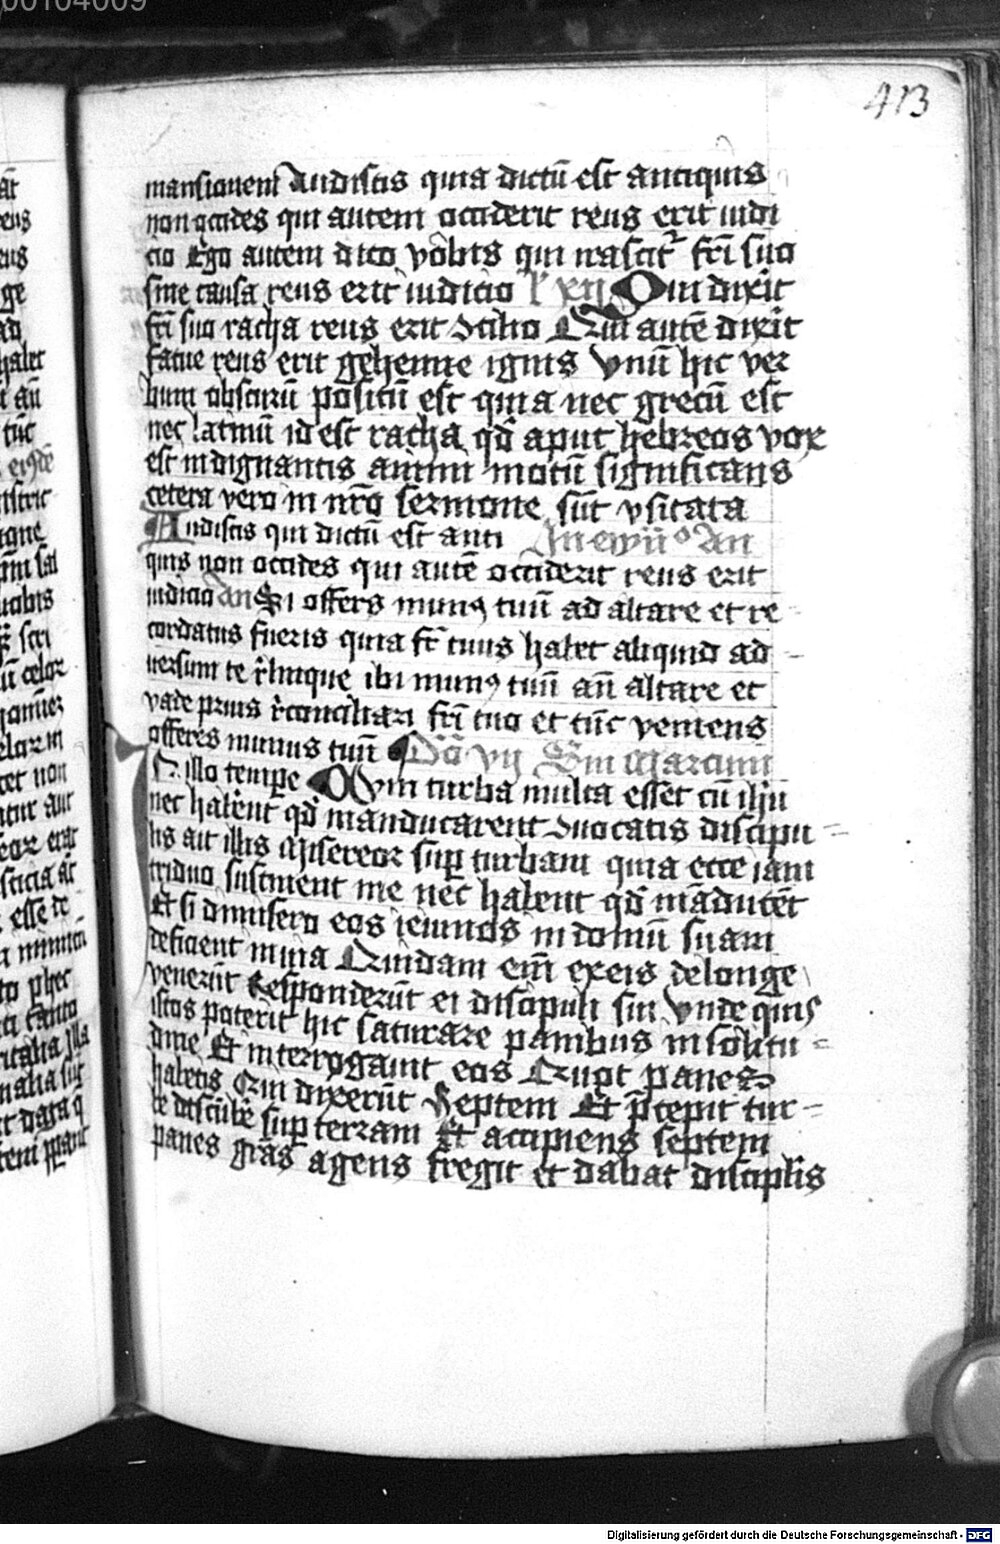 413
mansionem Audistis quia dictū est antiquis
non occides qui autem occiderit reus erit iudi
cio Ego autem dico vobis qui irascit' fr̄i suo
sine causa reus erit iudicio l' xij Qui dixit
fr̄i suo racha reus erit 2cilio Qui autē dixit
fatue reus erit gehenne ignis Vnū hic ver
bum obscurū positū est quia nec grecū est
nec latinū id est racha qd̄ aput hebreos vox
est indignantis animi motū significans
cetera vero in nr̄o sermone sūt vsitata
Audistis qui dictū est anti In ewīi° An
quis non occides qui autē occiderit reus erit
iudicio An Si offers mun9 tuū ad altare et re-
cordatus fueris quia fr̄ tuus habet aliquid ad-
uersum te r̄linque ibi mun9 tuū an̄ altare et
vade prius r̄conciliari fr̄i tuo et tūc veniens
offeres munus tuū Dō̄ vij Sm̄ Marcum
In illo tempe Cum turba multa esset cū ihū
nec habēnt qd̄ manducarent 2uocatis discipu=
lis ait illis Misereor sup turbam quia ecce iam
triduo sustinent me nec habent qd̄ māducēt
Et si dimisero eos ieiunos in domū suam
deficient in uia Quidam em̄ ex eis de longe
venerūt Responderūt ei discipuli sui Vnde quis
istos poterit hic saturare panibus in solitu=
dine Et interrogauit eos Quot panes
habetis Qui dixerūt Septem Et p̄cepit tur=
be discūbē sup terram Et accipiens septem
panes gr̄as agens fregit et dabat disciplis
Digitalisierung gefördert durch die Deutsche Forschungsgemeinschaft - DFG